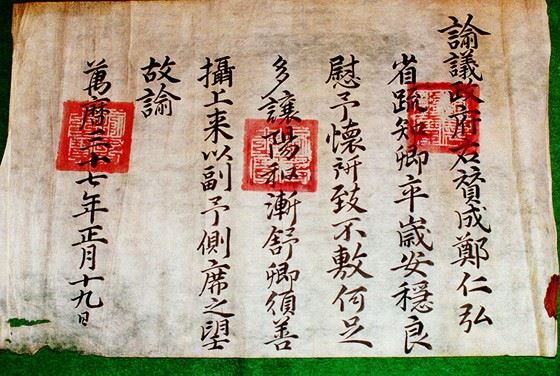 諭議政府右贊成鄭仁弘
省疏知卿卒歲安穩良
慰予懷所致不敷何足
多讓陽和漸舒卿須善
攝上來以副予側席之望
故諭
萬曆三十七年正月十九日